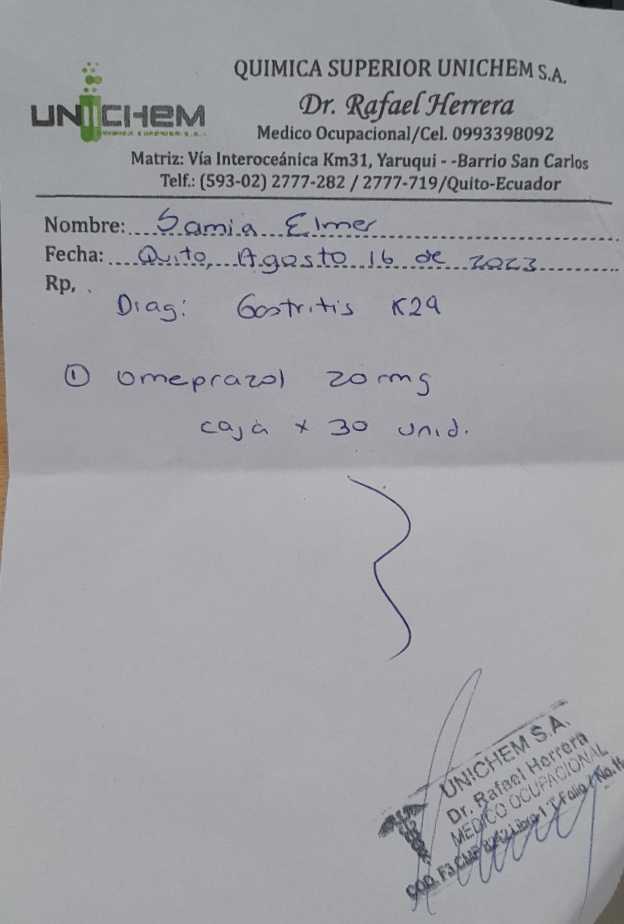 QUIMICA SUPERIOR UNICHEM S.A.
UNICHEM
QUIMICA SUPERIOR S.A.
Dr. Rafael Herrera
Medico Ocupacional/Cel. 0993398092
Matriz: Vía Interoceánica Km31, Yaruqui - -Barrio San Carlos
Telf.: (593-02) 2777-282 / 2777-719/Quito-Ecuador
Nombre: Samia Elmer
Fecha: Quito, Agosto 16 de 2023
Rp,
Diag: Gastritis K29
① Omeprazol 20 mg
caja x 30 unid.
UNICHEM S.A.
Dr. Rafael Herrera
MEDICO OCUPACIONAL
COD. F3 CMP Libro 1 Folio 1 No.